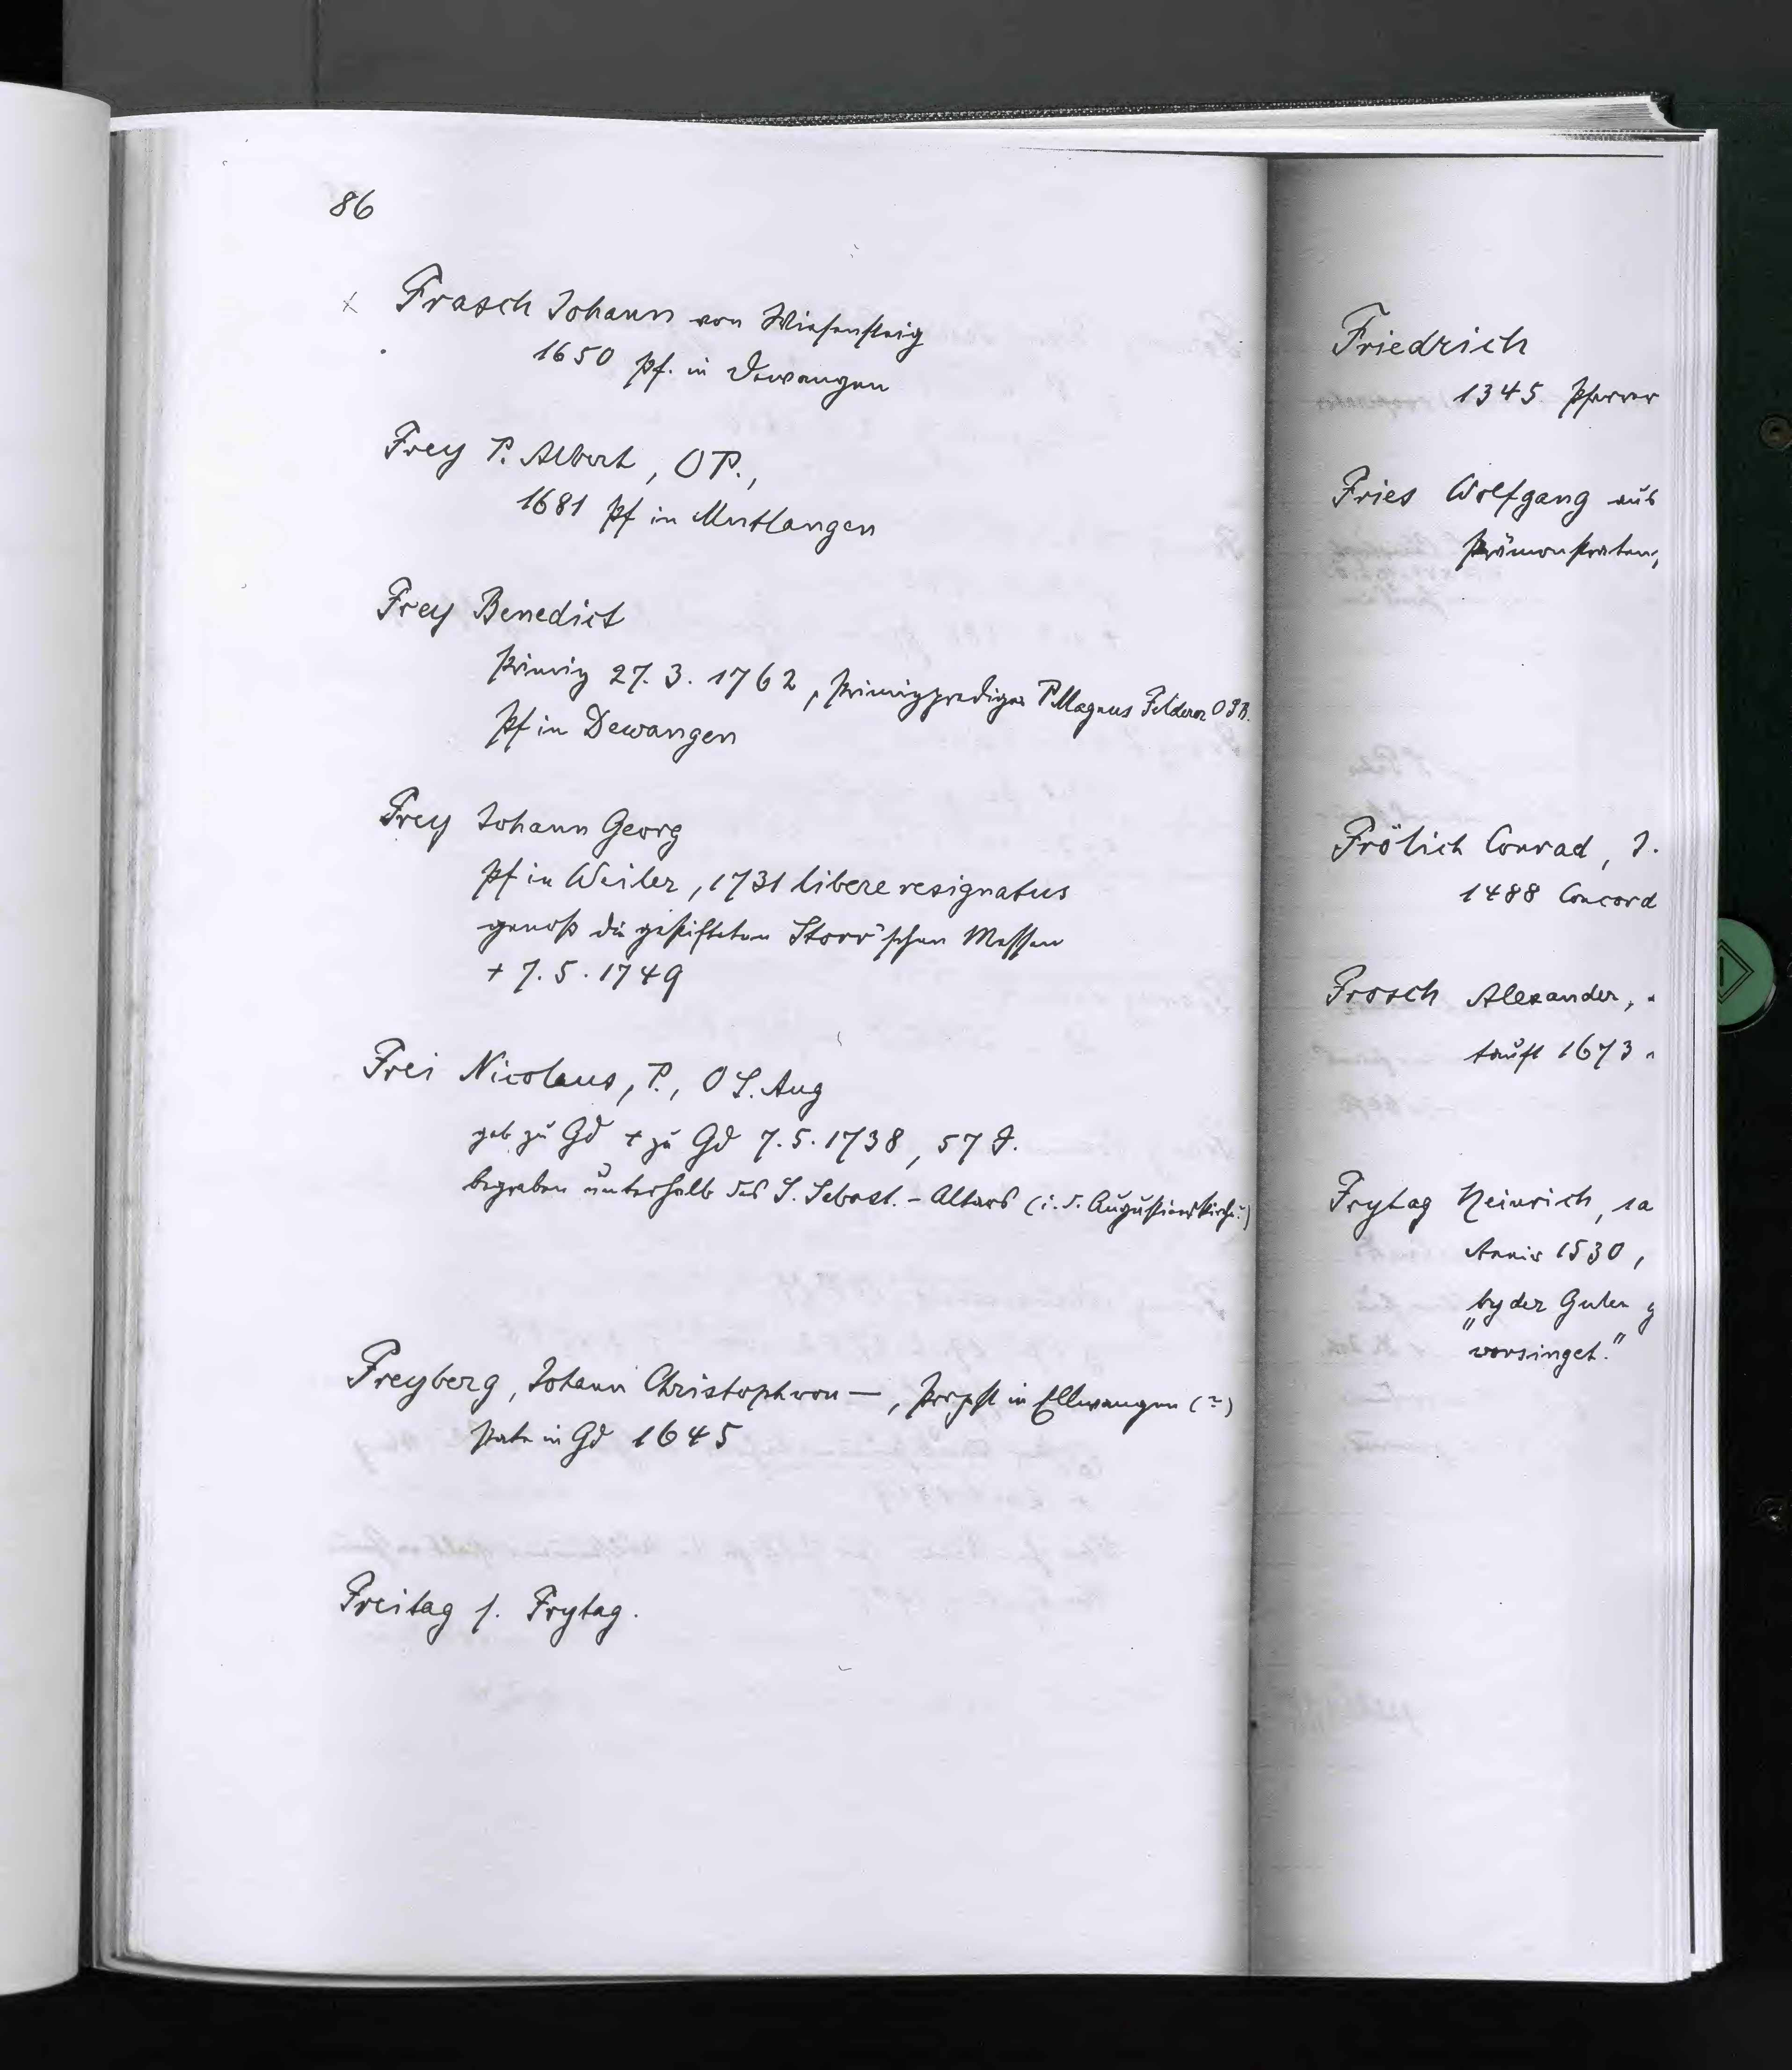 86
x Frasch Johann von Wiesensteig
1650 Pf. in Dewangen
Frey P. Albert, OP.,
1681 Pf in Mutlangen
Frey Benedict
Primiz 27. 3. 1762, Primizprediger P. Magnus Felderer OSB.
Pf in Dewangen
Frey Johann Georg
Pf in Weiler, 1731 libere resignatus
genoß die gestifteten Storr'schen Messen
+ 7. 5. 1749
Frei Nicolaus, P., O S. Aug
geb zu Gd + zu Gd 7. 5. 1738, 57 J.
begraben unterhalb des S. Sebast. - Altars (i. d. Augustinerkirche?)
Freyberg, Johann Christoph von —, Propst in Ellwangen (?)
Pate in Gd 1645
Freitag s. Frytag.
Friedrich
1345 Pfarrer
Fries Wolfgang aus
Prämonstraten
Frölich Conrad, J.
1488 Concord
Frosch Alexander,
tauft 1673
Frytag Heinrich, 1a
Annis 1530,
"by der Guten g
vorsinget."